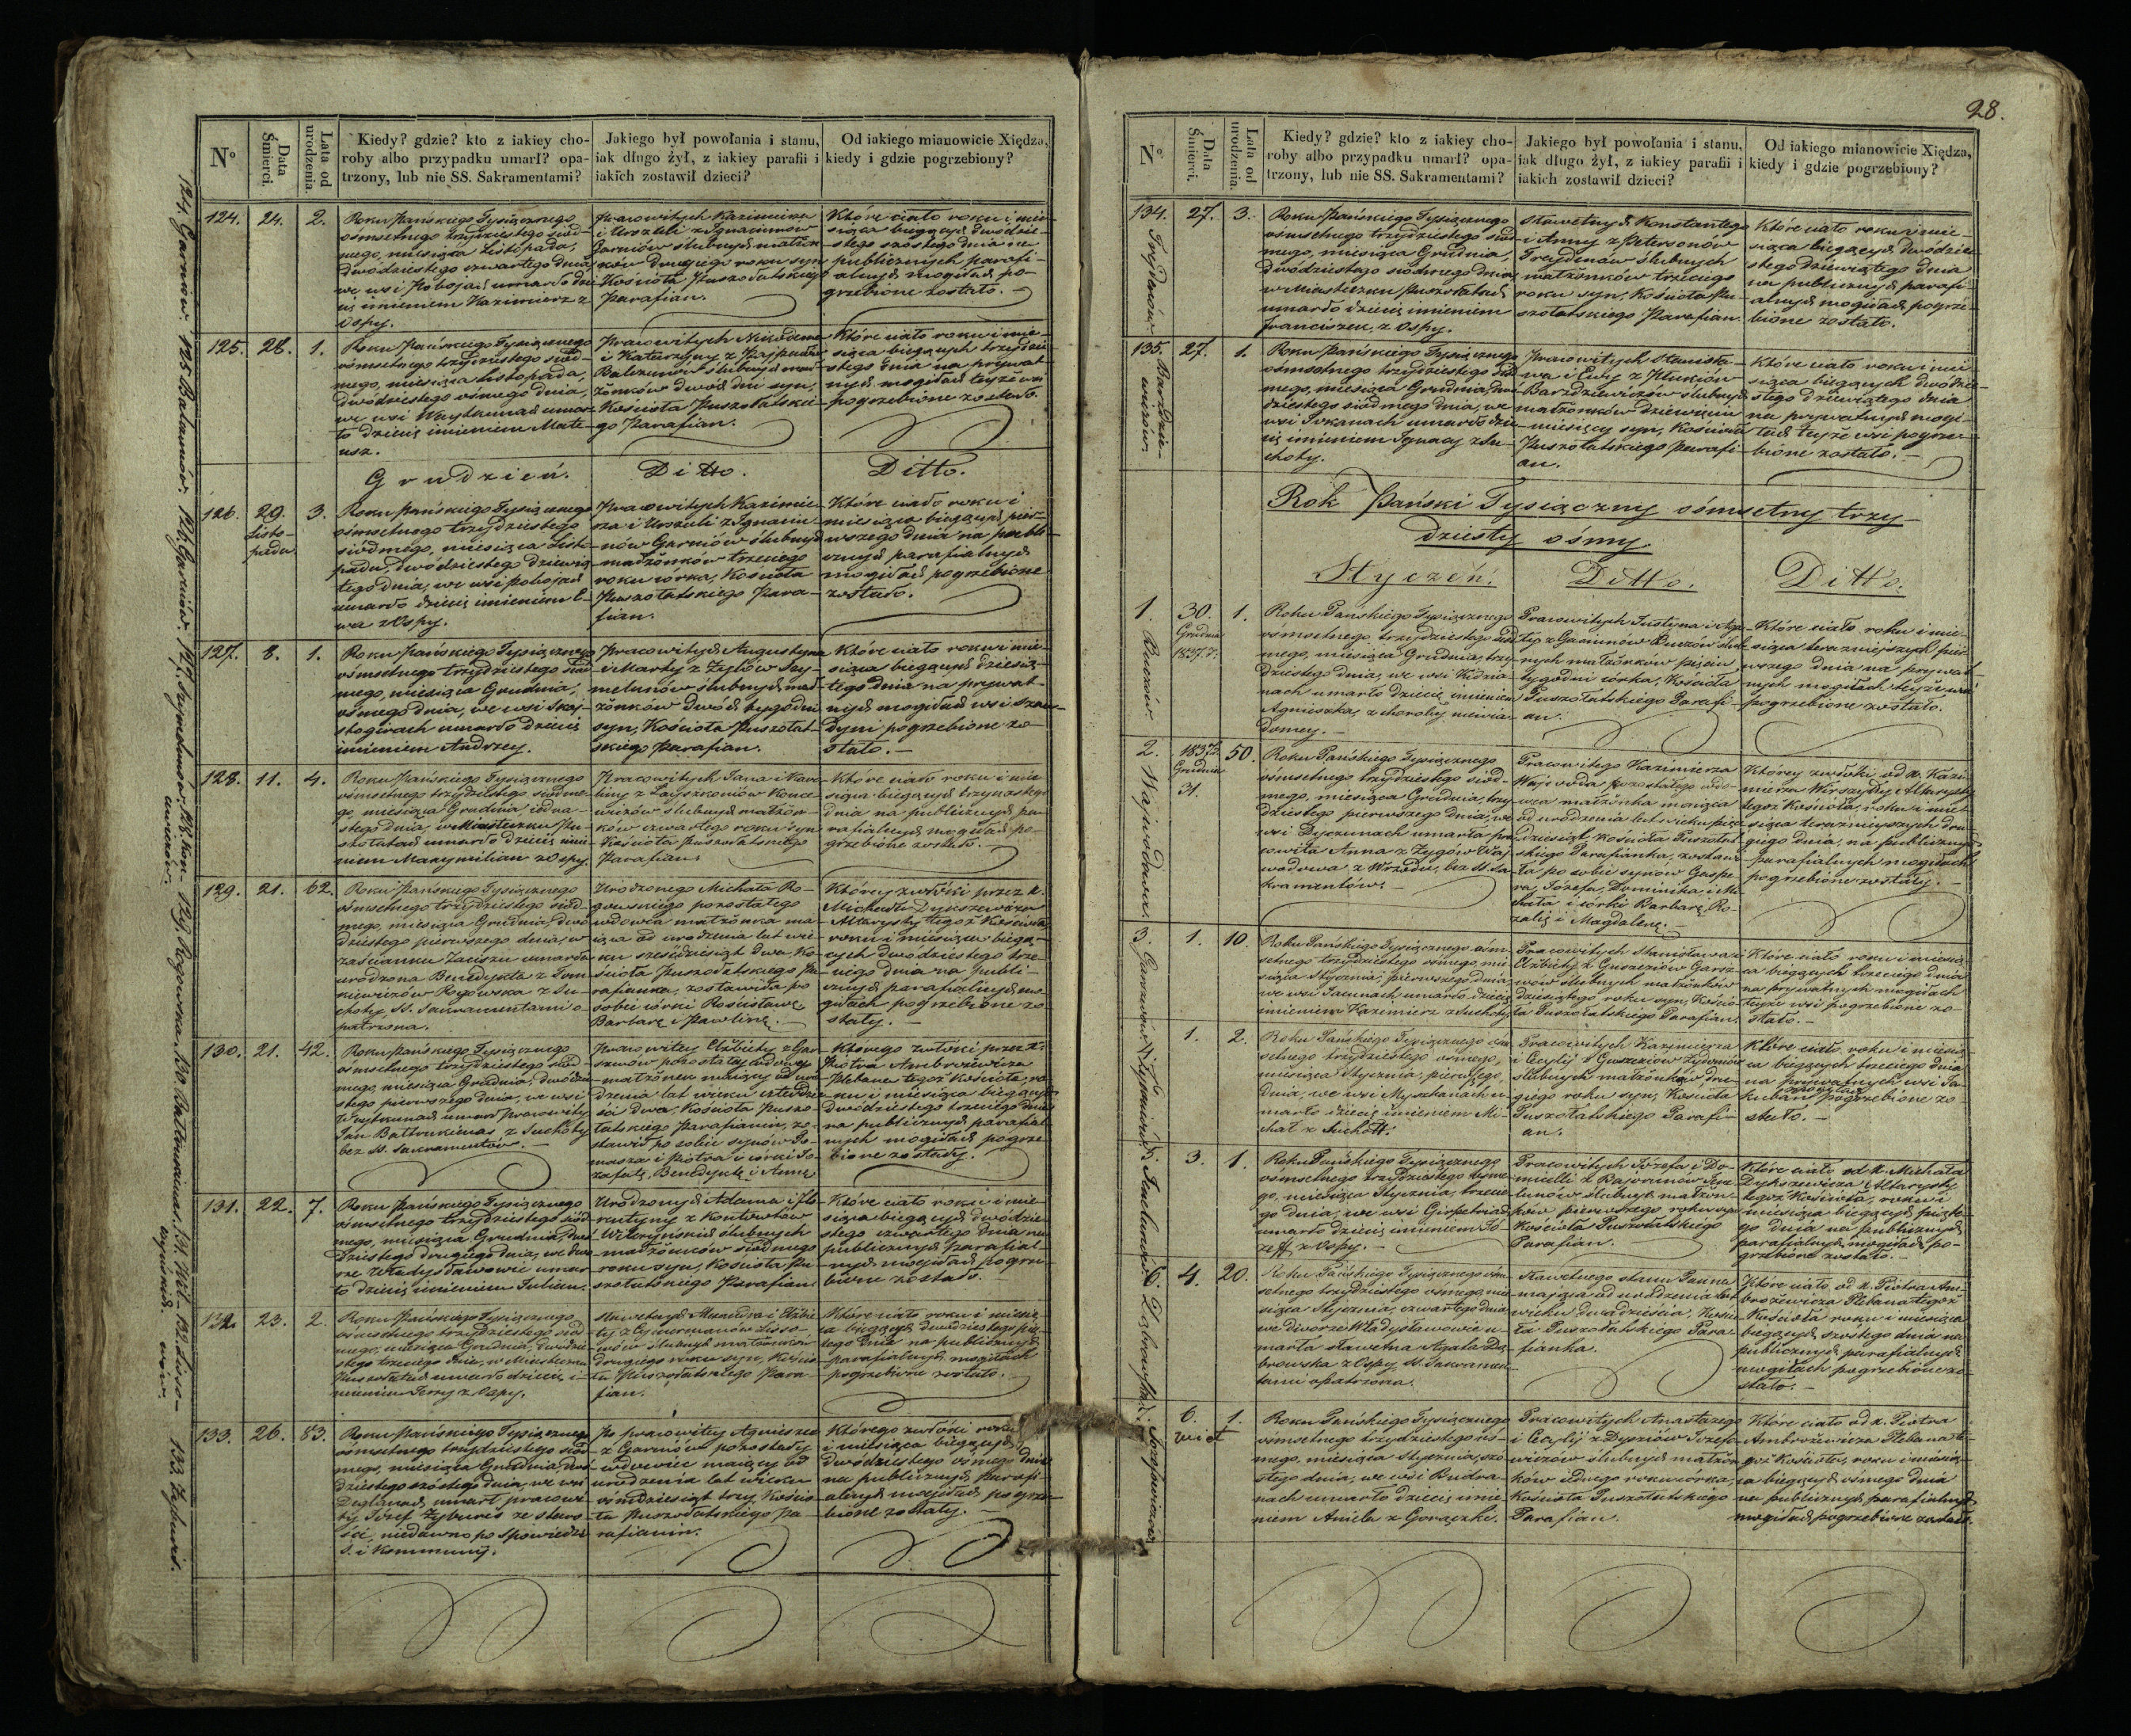 28.
Nº
Data Śmierci.
Lata od urodzenia.
Kiedy? gdzie? kto z iakiey cho-
roby albo przypadku umarł? opa-
trzony, lub nie SS. Sakramentami?
Jakiego był powołania i stanu,
iak długo żył, z iakiey parafii i
iakich zostawił dzieci?
Od iakiego mianowicie Xiędza,
kiedy i gdzie pogrzebiony?
124. 24. 2.
Roku Pańskiego Tysiącznego
ośmsetnego trzydziestego siód-
mego, miesiąca Listopada,
dwódziestego czwartego dnia,
we wsi Pobojach umarło dzie-
cię imieniem Kazimierz z
Ospy.
Pracowitych Kazimierza
i Urszuli z Ignaciunow
Garniów ślubnych małżon-
ków drugiego roku syn,
Kościoła Puszołatskiego
Parafian.
Które ciało roku i mie-
siąca bieżących dwódzie-
stego szóstego dnia na
publicznych parafi-
alnych mogiłach po-
grzebione zostało.
125. 28. 1.
Roku Pańskiego Tysiącznego
ośmsetnego trzydziestego siód-
mego, miesiąca Listopada,
dwódziestego ósmego dnia,
we wsi Woytkunach umar-
ło dziecię imieniem Mate-
usz.
Pracowitych
i Katarzyny z
Balziunów ślubnych mał-
żonków dwóch dni syn,
Kościoła Puszołatskie-
go Parafian.
Które ciało roku i mie-
siąca bieżących trzydzie-
stego dnia na prywat-
nych mogiłach teyże wsi
pogrzebione zostało.
Grudzień. Ditto. Ditto.
126. 29. Listo-
pada. 3.
Roku Pańskiego Tysiącznego
ośmsetnego trzydziestego
siódmego, miesiąca Listo-
pada, dwódziestego dziewią-
tego dnia, we wsi Pobojach
umarło dziecię imieniem E-
wa z Ospy.
Pracowitych Kazimie-
rza i Urszuli z Ignaciu-
nów Garniów ślubnych
małżonków trzeciego
roku córka, Kościoła
Puszołatskiego Para-
fian.
Które ciało roku i
miesiąca bieżących pier-
wszego dnia na publi-
cznych parafialnych
mogiłach pogrzebione
zostało.
127. 8. 1.
Roku Pańskiego Tysiącznego
ośmsetnego trzydziestego siód-
mego, miesiąca Grudnia,
ósmego dnia, we wsi
umarło dziecię
imieniem Andrzey.
Pracowitych Augustyna
i Marty z Zylów Szy-
melunów ślubnych mał-
żonków dwóch tygodni
syn, Kościoła Puszołat-
skiego Parafian.
Które ciało roku i mie-
siąca bieżących dziesią-
tego dnia na prywat-
nych mogiłach wsi
pogrzebione zo-
stało.
128. 11. 4.
Roku Pańskiego Tysiącznego
ośmsetnego trzydziestego siódme-
go, miesiąca Grudnia iedna-
stego dnia, w Miasteczku Pu-
szołatach umarło dziecię imie-
niem Maxymilian z Ospy.
Pracowitych Jana i Karo-
liny z
ślubnych małżon-
ków czwartego roku syn
Kościoła Puszołatskiego
Parafian.
Które ciało roku i mie-
siąca bieżących trzynastego
dnia na publicznych pa-
rafialnych mogiłach po-
grzebione zostało.
129. 21. 62.
Roku Pańskiego Tysiącznego
ośmsetnego trzydziestego siód-
mego, miesiąca Grudnia, dwó-
dziestego pierwszego dnia, w
zaścianku Zaciszu umarła
urodzona Benedykta z Tom-
kiewiczów Rogowska z Su-
choty SS. Sakramentami o-
patrzona.
Urodzonego Michała Ro-
gowskiego pozostałego
wdowca małżonka ma-
iąca od urodzenia lat wie-
ku sześćdziesiąt dwa, Ko-
ścioła Puszołatskiego Pa-
rafianka, zostawiła po
sobie córki Rościsławę,
Barbarę i Pawlinę.
Którey zwłoki przez x.
Michała Dyksiewicza
Altarystę tegoż Kościoła,
roku i miesiąca bieżą-
cych dwódziestego trze-
ciego dnia na publi-
cznych parafialnych mo-
giłach pogrzebione zo-
stały.
130. 21. 42.
Roku Pańskiego Tysiącznego
ośmsetnego trzydziestego siód-
mego, miesiąca Grudnia, dwódzie-
stego pierwszego dnia, we wsi
Woytkunach umarł pracowity
Jan Bałtrukienas z Suchoty
bez SS. Sakramentów.
Pracowitey Elżbiety z Gar-
szwów pozostałey wdowy
małżonek maiący od uro-
dzenia lat wieku czterdzie-
ści dwa, Kościoła Puszo-
łatskiego Parafianin, zo-
stawił po sobie synów To-
masza i Piotra i córki Jo-
zafatę, Benedyktę i Annę.
Którego zwłoki przez x.
Piotra Ambrożewicza
Plebana tegoż Kościoła, ro-
ku i miesiąca bieżących
dwódziestego trzeciego dnia
na publicznych parafial-
nych mogiłach pogrze-
bione zostały.
131. 22. 7.
Roku Pańskiego Tysiącznego
ośmsetnego trzydziestego siód-
mego, miesiąca Grudnia, dwó-
dziestego drugiego dnia, we dwo-
rze Władysławowie umar-
ło dziecię imieniem Julian.
Urodzonych Adama i Flo-
rentyny z Kontowtów
ślubnych
małżonków siódmego
roku syn, Kościoła Pu-
szołatskiego Parafian.
Które ciało roku i mie-
siąca bieżących dwódzie-
stego czwartego dnia na
publicznych parafial-
nych mogiłach pogrze-
bione zostało.
132. 23. 2.
Roku Pańskiego Tysiącznego
ośmsetnego trzydziestego siód-
mego, miesiąca Grudnia, dwódzie-
stego trzeciego dnia, w Miasteczku
Puszołatach umarło dziecię i-
mieniem Jerzy z Ospy.
Sławetnych Alexandra i Elżbie-
ty z
ślubnych małżonków
drugiego roku syn, Kościo-
ła Puszołatskiego Para-
fian.
Które ciało roku i miesią-
ca bieżących dwódziestego pią-
tego dnia na publicznych
parafialnych mogiłach
pogrzebione zostało.
133. 26. 83.
Roku Pańskiego Tysiącznego
ośmsetnego trzydziestego siód-
mego, miesiąca Grudnia, dwó-
dziestego szóstego dnia, we wsi
umarł pracowi-
ty Józef Żyburis ze staro-
ści, niedawno po Spowiedzi
S. i Kommunij.
Po pracowitey Agnieszce
z Garniów pozostały
wdowiec maiący od
urodzenia lat wieku
ośmdziesiąt trzy, Kościo-
ła Puszołatskiego Pa-
rafianin.
Którego zwłoki roku
i miesiąca bieżących
dwódziestego ósmego dnia
na publicznych parafi-
alnych mogiłach pogrze-
bione zostały.
Nº
Data Śmierci.
Lata od urodzenia.
Kiedy? gdzie? kto z iakiey cho-
roby albo przypadku umarł? opa-
trzony, lub nie SS. Sakramentami?
Jakiego był powołania i stanu,
iak długo żył, z iakiey parafii i
iakich zostawił dzieci?
Od iakiego mianowicie Xiędza,
kiedy i gdzie pogrzebiony?
134. 27. 3.
Roku Pańskiego Tysiącznego
ośmsetnego trzydziestego siód-
mego, miesiąca Grudnia,
dwódziestego siódmego dnia
w Miasteczku Puszołatach
umarło dziecię imieniem
Franciszek, z Ospy.
Sławetnych Konstantego
i Anny z Petersonów
Freydenów ślubnych
małżonków trzeciego
roku syn, Kościoła Pu-
szołatskiego Parafian.
Które ciało roku i mie-
siąca bieżących dwódzie-
stego dziewiątego dnia
na publicznych parafi-
alnych mogiłach pogrze-
bione zostało.
135. 27. 1.
Roku Pańskiego Tysiącznego
ośmsetnego trzydziestego siód-
mego, miesiąca Grudnia, dwó-
dziestego siódmego dnia, we
wsi umarło dzie-
cię imieniem Ignacy z Su-
choty.
Pracowitych Stanisła-
wa i Ewy z
Barzdziewiczów ślubnych
małżonków dziewięciu
miesięcy syn, Kościoła
Puszołatskiego Parafi-
an.
Które ciało roku i mie-
siąca bieżących dwódzie-
stego dziewiątego dnia
na prywatnych mogi-
łach teyże wsi pogrze-
bione zostało.
Rok Pański Tysiączny ośmsetny trzy-
dziesty ósmy.
Styczeń. Ditto. Ditto.
1. 30. Grudnia 1837 r. 1.
Roku Pańskiego Tysiącznego
ośmsetnego trzydziestego siód-
mego, miesiąca Grudnia, trzy-
dziestego dnia, we wsi
umarło dziecię imieniem
Agnieszka, z choroby niewia-
domey.
Pracowitych Justyna i Aga-
ty z ślub-
nych małżonków pięciu
tygodni córka, Kościoła
Puszołatskiego Parafi-
an.
Które ciało roku i mie-
siąca teraznieyszych pier-
wszego dnia na prywat-
nych mogiłach teyże wsi
pogrzebione zostało.
2. 1837 r. Grudnia 31. 50.
Roku Pańskiego Tysiącznego
ośmsetnego trzydziestego siód-
mego, miesiąca Grudnia, trzy-
dziestego pierwszego dnia, we
wsi umarła pra-
cowita Anna z Zygów Way-
wodowa z Wrzodu, bez SS. Sa-
kramentów.
Pracowitego Kazimierza
Waywoda pozostałego wdo-
wca małżonka maiąca
od urodzenia lat wieku pięć-
dziesiąt, Kościoła Puszołat-
skiego Parafianka, zostawi-
ła po sobie synów Gaspe-
ra, Józefa, Dominika i Mi-
chała i córki Barbarę, Ro-
zalię i Magdalenę.
Którey zwłoki od x. Kazi-
mierza Wirszyłły Altarysty
tegoż Kościoła, roku i mie-
siąca teraznieyszych dru-
giego dnia, na publicznych
parafialnych mogiłach
pogrzebione zostały.
3. 1. 10.
Roku Pańskiego Tysiącznego ośm-
setnego trzydziestego ósmego, mie-
siąca Stycznia, pierwszego dnia,
we wsi umarło dziecię
imieniem Kazimierz z Suchoty.
Pracowitych Stanisława i
Elżbiety z Garsz-
wów ślubnych małżonków
dziesiątego roku syn, Kościo-
ła Puszołatskiego Parafian.
Które ciało roku i miesią-
ca bieżących trzeciego dnia
na prywatnych mogiłach
teyże wsi pogrzebione zo-
stało.
1. 2.
Roku Pańskiego Tysiącznego ośm-
setnego trzydziestego ósmego,
miesiąca Stycznia, pierwszego
dnia, we wsi u-
marło dziecię imieniem Mi-
chał z Suchot.
Pracowitych Kazimierza
i Cecylij z
ślubnych małżonków, dru-
giego roku syn, Kościoła
Puszołatskiego Parafi-
an.
Które ciało roku i miesią-
ca bieżących trzeciego dnia
na prywatnych wsi Ja-
kuban mogiłach pogrzebione zo-
stało.
3. 1.
Roku Pańskiego Tysiącznego
ośmsetnego trzydziestego ósme-
go, miesiąca Stycznia, trzecie-
go dnia, we wsi
umarło dziecię imieniem Jó-
zeff, z Ospy.
Pracowitych Józefa i Do-
micelli z
ślubnych małżon-
ków pierwszego roku syn,
Kościoła Puszołatskiego
Parafian.
Które ciało od x. Michała
Dyksiewicza Altarysty
tegoż Kościoła, roku i
miesiąca bieżących piąte-
go dnia na publicznych
parafialnych mogiłach po-
grzebione zostało.
6. 4. 20.
Roku Pańskiego Tysiącznego ośm-
setnego trzydziestego ósmego, mie-
siąca Stycznia, czwartego dnia
we dworze Władysławowie u-
marła sławetna Agata Dą-
browska z Ospy, SS. Sakramen-
tami opatrzona.
Sławetnego stanu Panna
maiąca od urodzenia lat
wieku dwadzieścia, Kościo-
ła Puszołatskiego Para-
fianka.
Które ciało od x. Piotra Am-
brożewicza Plebana tegoż
Kościoła roku i miesiąca
bieżących szóstego dnia na
publicznych parafialnych
mogiłach pogrzebione zo-
stało.
6. 1.
Roku Pańskiego Tysiącznego
ośmsetnego trzydziestego ós-
mego, miesiąca Stycznia, szó-
stego dnia, we wsi Budra-
nach umarło dziecię imie-
niem Aniela z Gorączki.
Pracowitych Anastazego
i Cecylij z
ślubnych małżon-
ków iednego roku córka,
Kościoła Puszołatskiego
Parafian.
Które ciało od x. Piotra
Ambrożewicza Plebana te-
goż Kościoła, roku i miesią-
ca bieżących ósmego dnia
na publicznych parafialnych
mogiłach pogrzebione zostało.